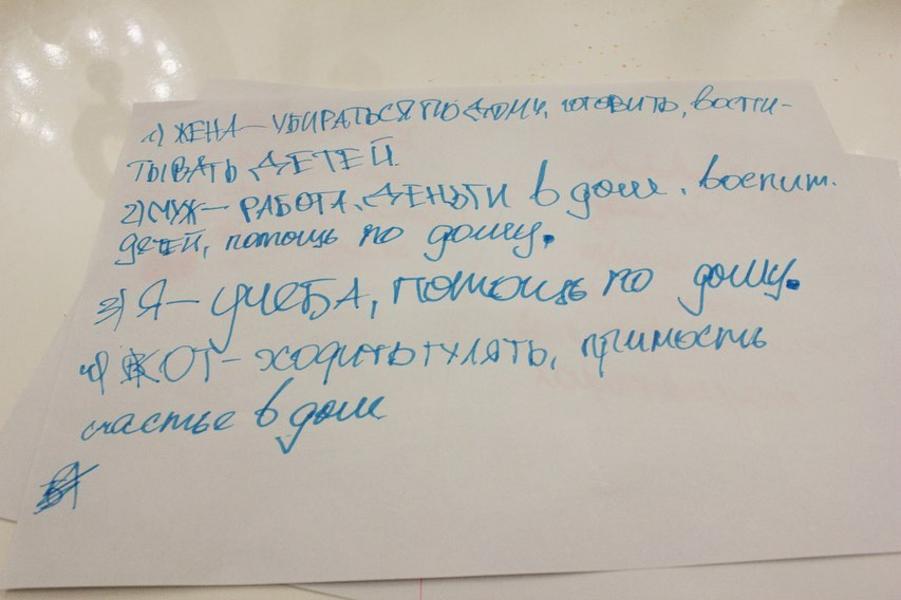 1) ЖЕНА — УБИРАТЬСЯ ПО ДОМУ, ГОТОВИТЬ, ВОСПИ-
ТЫВАТЬ ДЕТЕЙ.
2) МУЖ — РАБОТА, ДЕНЬГИ в дом, воспит.
детей, помощь по дому.
3) Я — УЧЕБА, помощь по дому.
4) КОТ — ходить гулять, приность
счастье в дом